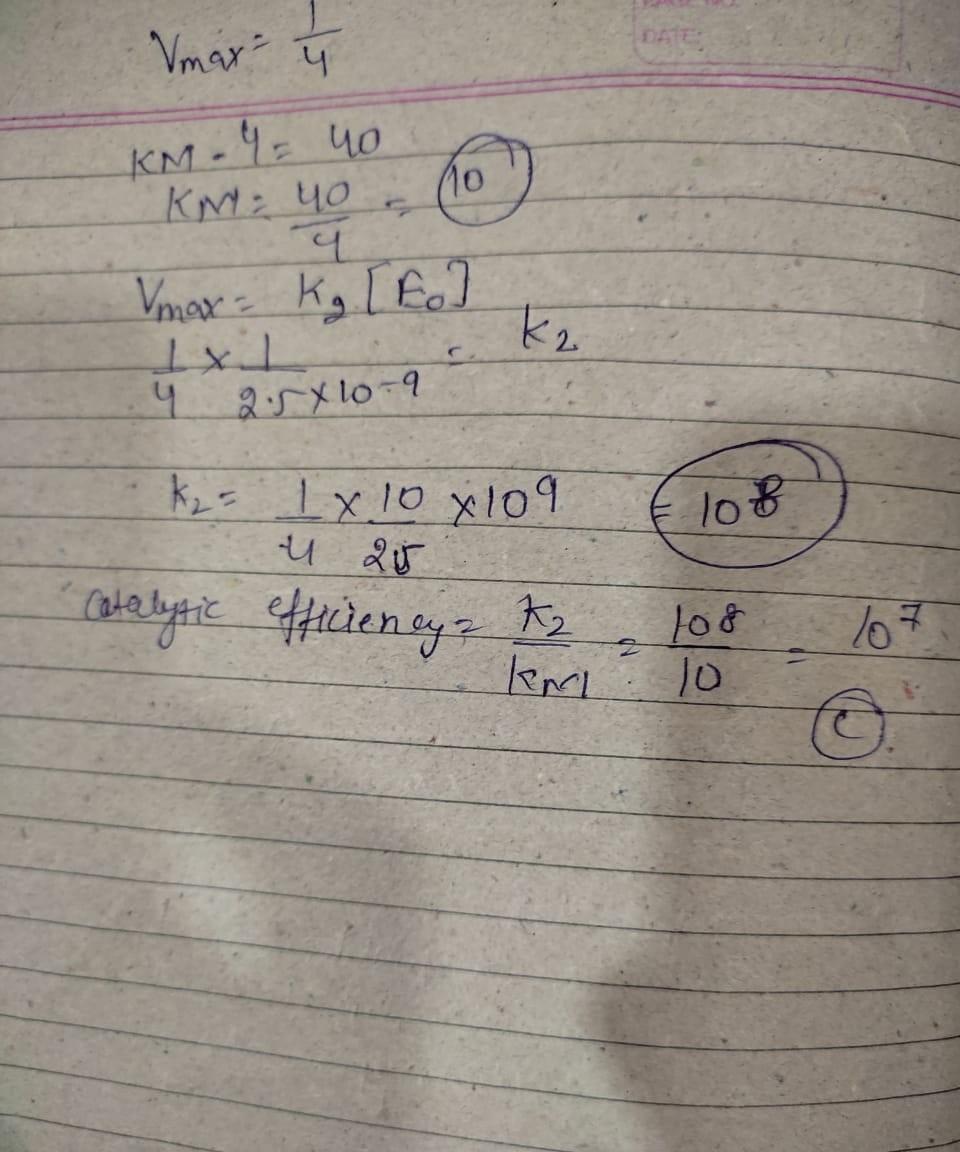 Vmax = 1/4
DATE:
KM - 4 = 40
KM = 40/4 = 10
Vmax = K2 [E0]
1/4 × 1/2.5×10-9 = k2
k2 = 1/4 × 10/25 × 10 9 = 10 8
Catalytic efficiency = k2/KM = 10 8/10 = 10 7
C